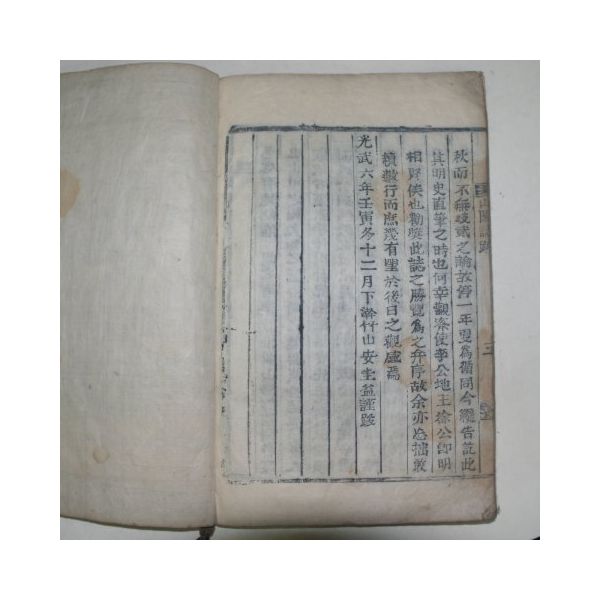 秋而不無岐貳之論故停一年更爲循同今纔告訖此
其明史直筆之時也何幸觀察使李公地主徐公卽明
相賢侯也勸奬此誌之勝覽爲之弁序故余亦忘拙敢
續數行而庶幾有望於後日之觀感焉
光武六年壬寅冬十二月下澣竹山安圭益謹跋